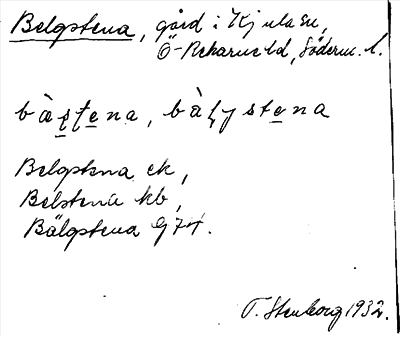 Belgstena, gård i Kjulasn,
Ö-Rekarne hd, Söderm. l.
bàs̱ṯe̱na, bàḻyste̱na
Belgstena ek,
Belstena kb,
Bälgstena G74.
T. Stenborg 1932.